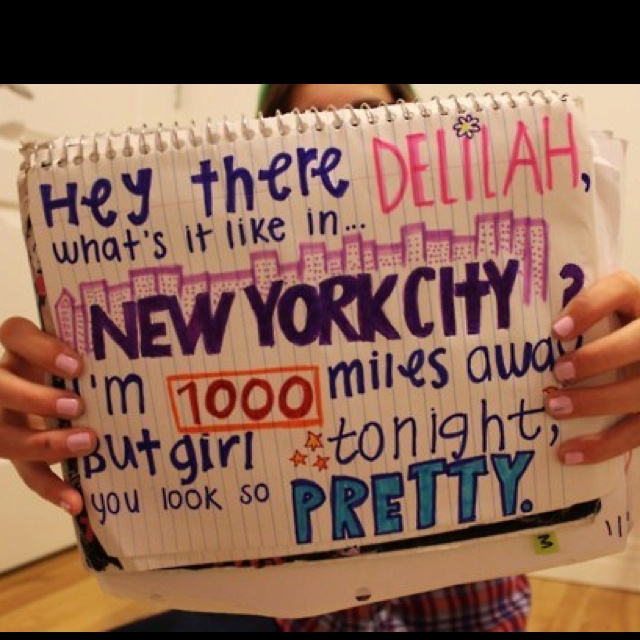 Hey there DELILAH,
what's it like in...
NEW YORK CITY?
I'm 1000 miles away
But girl tonight,
you look so PRETTY.
M